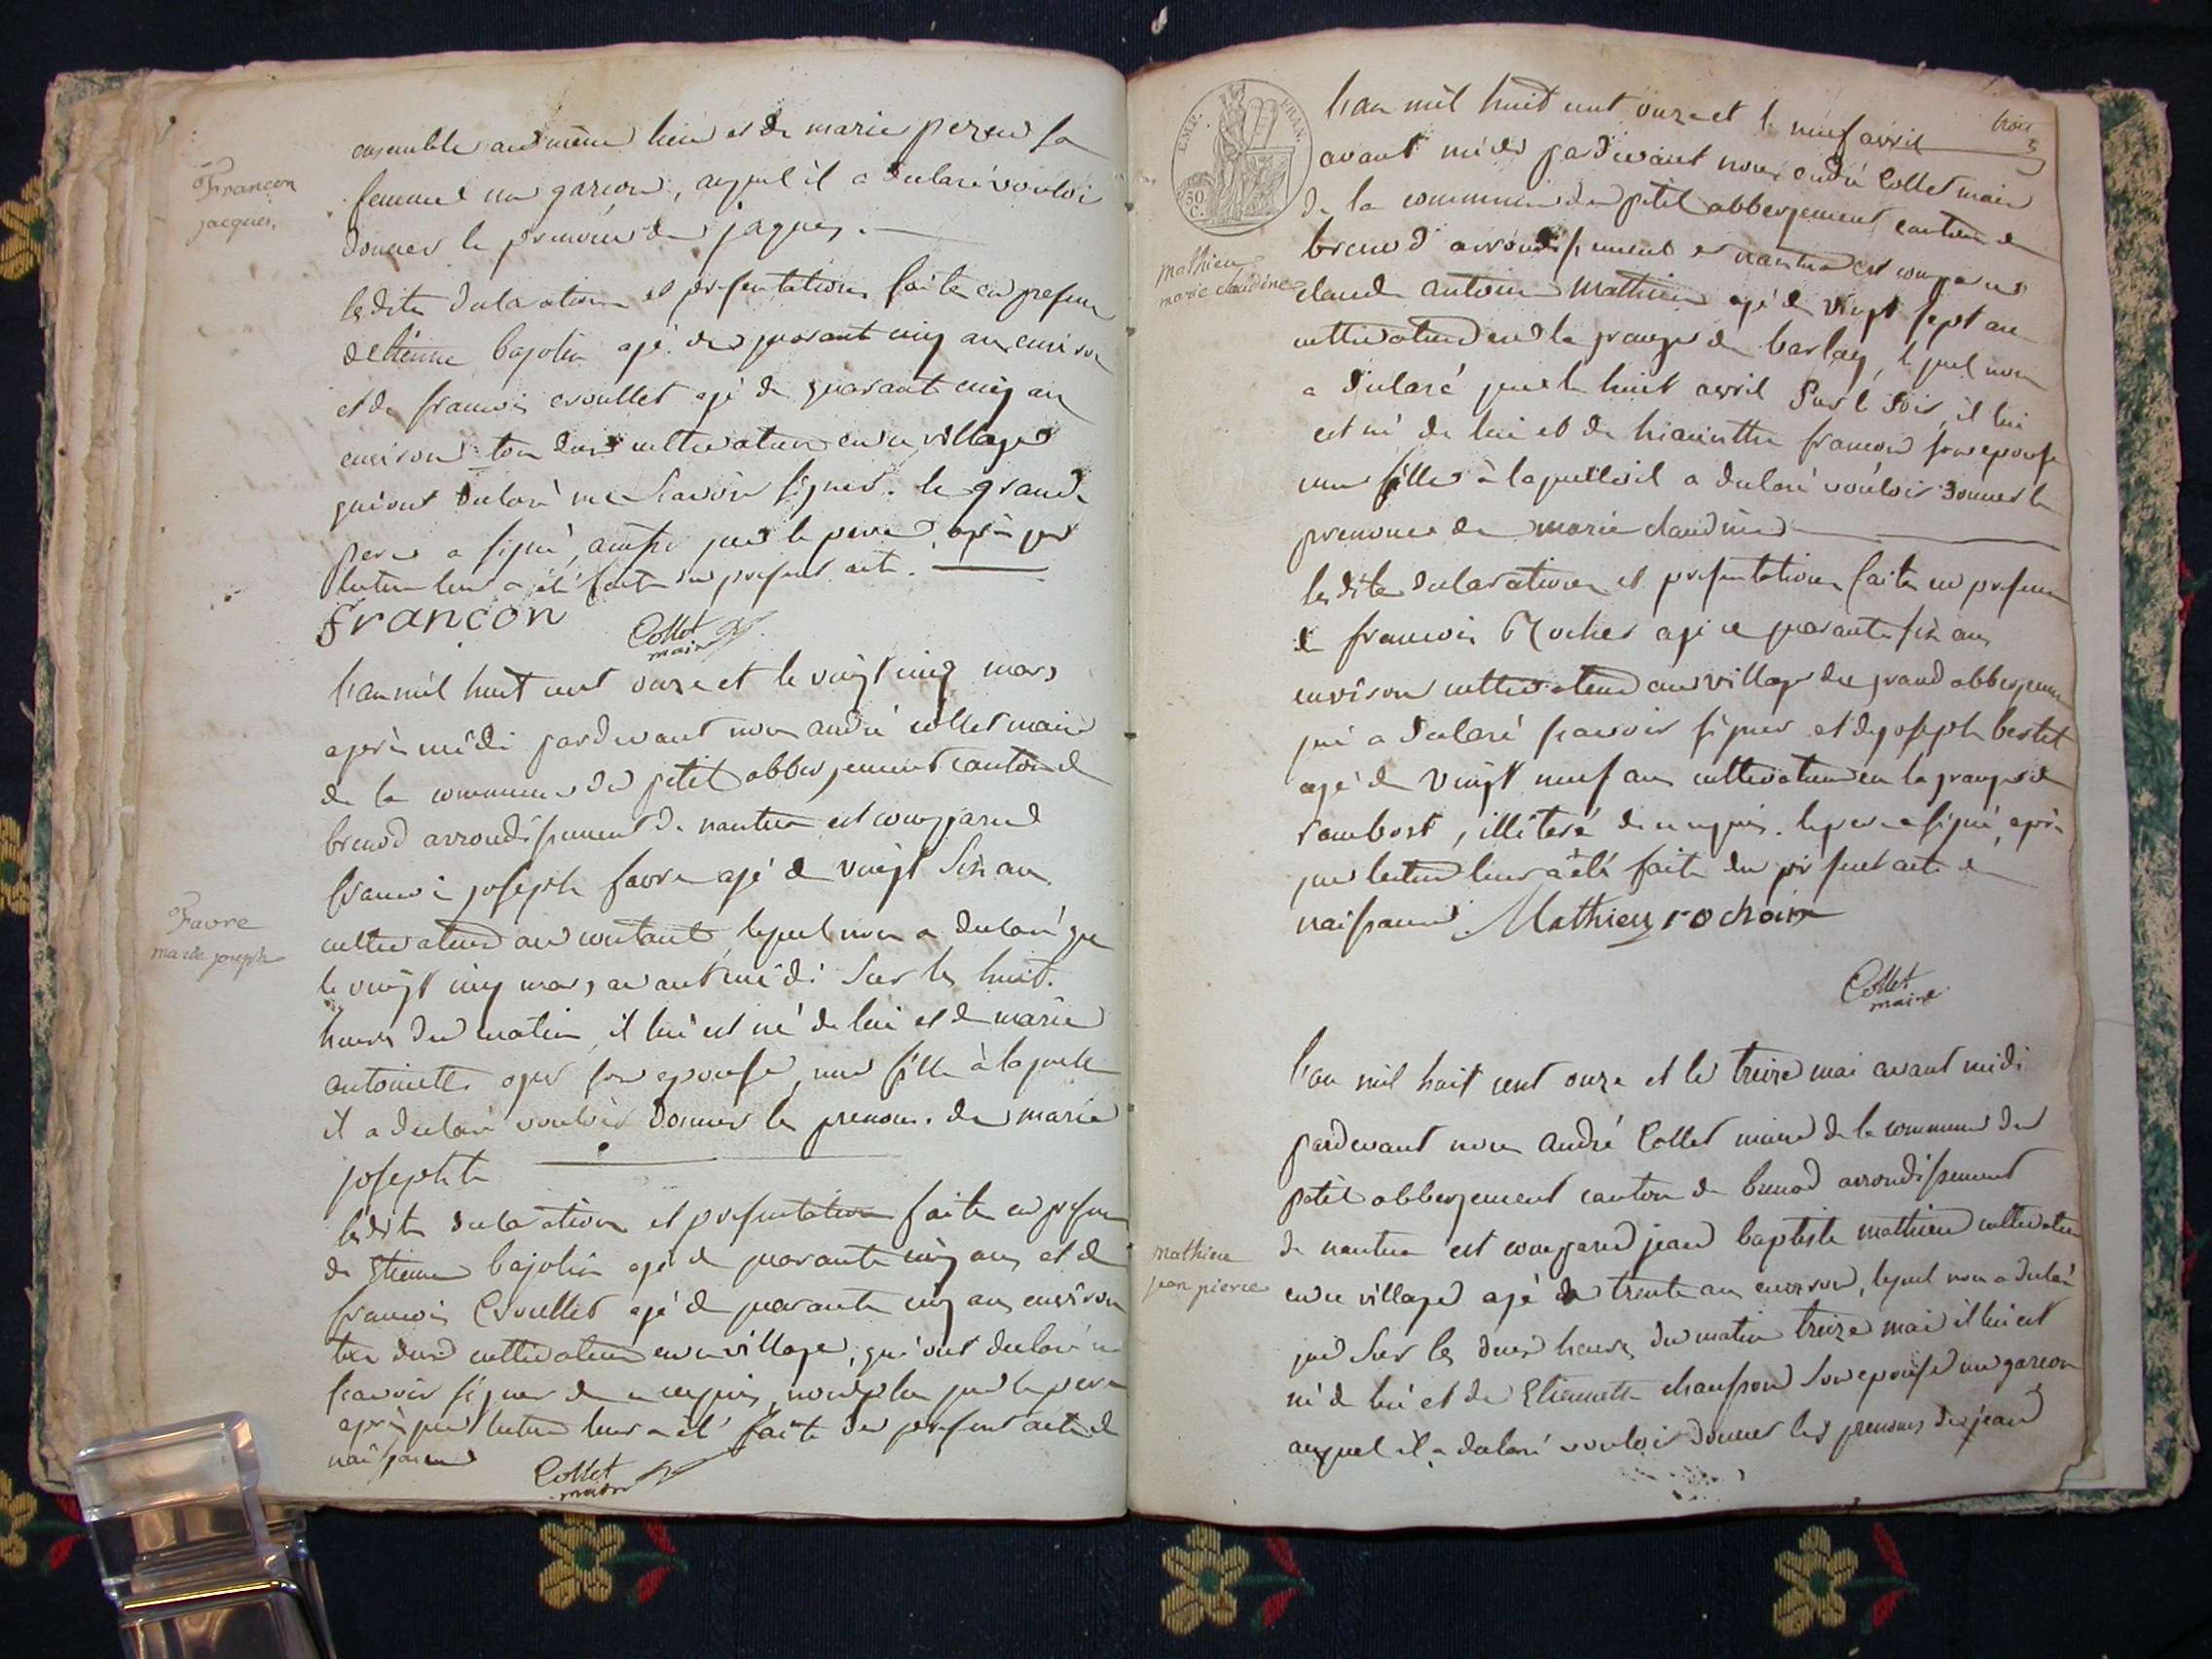 Francon
jacques.
ensemble au même lieu et de marie
femme un garcon, auquel il a declaré vouloir
donner le prenom de jaques.
lesdites declaration et presentation faite en presence
detienne bajolin agé de quarant cinq ans environ
et de francois croullet agé de quarante cinq ans
environ tou deux cultivateur en ce village
qui ont declaré ne scavoir signer. le grand
pere a signé, ainsi que le pere, après que
lecture leur a été faite du present acte.
Francon
Collet
maire
Favre
marie josephte
l'an mil huit cent onze et le vingt cinq mars
après midi pardevant nous andré collet maire
de la commune du petit abbergement canton de
brenod arrondissement de nantua est comparu
francoi joseph favre agé de vingt six ans
cultivateur au coutant, lequel nous a declaré que
le vingt cinq mars avant midi sur les huit
heures du matin, il lui est né de lui et de marie
antoinette oger son epouse, une fille à laquelle
il a declaré vouloir donner le prenom de marie
josephte
lesdite declaration et presentation faite en presence
de Etienne bajolin agé de quarante cinq ans et de
francois Croullet agé de quarante cinq ans environ
tou deux cultivateur en ce village, qui ont declaré ne
scavoir signer de ce requis, non plus que le pere
après que lecture leur a été faite du present acte de
naissance
Collet
maire
trois
EMP. FRAN.
50 C.
mathieu
marie claudine
l'an mil huit cent onze et le neuf avril
avant midi pardevant nous andré Collet maire
de la commune du petit abbergement canton de
brenod arrondissement de nantua est comparu
claude antoine Mathieu agé de vingt sept ans
cultivateur en la grange de barlay, lequel nous
a declaré que le huit avril sur le soir, il lui
est né de lui et de hiacinthe francon son epouse
une fille à laquelle il a declaré vouloir donner le
prenoms de marie claudine
lesdite declaration et presentation faite en presence
de francois Rocher agé de quarante six ans
environ cultivateur au village du grand abbergement
qui a declaré scavoir signer et de joseph bertet
agé de vingt neuf ans cultivateur en la grange de
rambost, illiteré de ce requis. le pere a signé, après
que lecture leur a été faite du present acte de
naissance. Mathieu rochaix
Collet
maire
mathieu
jean pierre
l'an mil huit cent onze et le treize mai avant midi
pardevant nous André Collet maire de la commune du
petit abbergement canton de brenod arrondissement
de nantua est comparu jean baptiste mathieu cultivateur
en ce village agé de trente ans environ, lequel nous a declaré
que sur les deux heures du matin treize mai il lui est
né de lui et de Etiennette chanson son epouse un garcon
auquel il a declaré vouloir donner les prenoms de jean